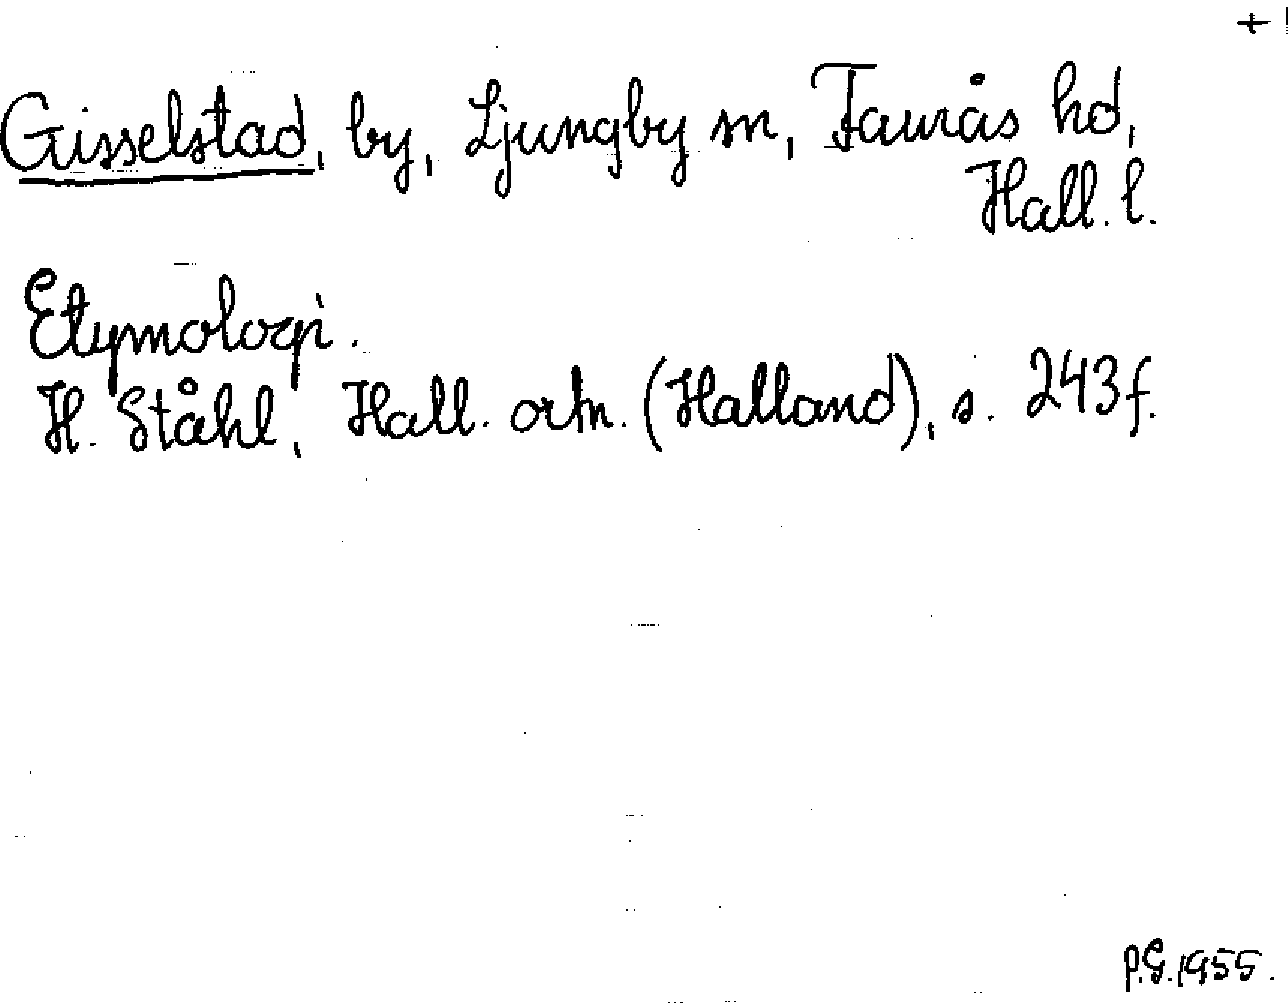 +
Gisselstad, by, Ljungby sn, Faurås hd,
Hall. l.
Etymologi.
H. Ståhl, Hall. ortn. (Halland), s. 243f.
P.G. 1955.